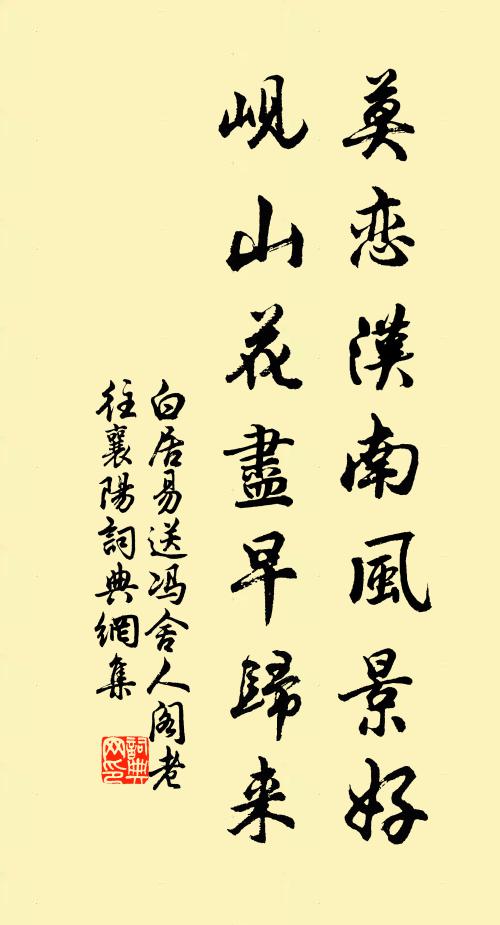 莫恋漢南風景好
峴山花盡早歸来
白居易送冯舍人阁老
往襄陽詞典網集
詞典网印